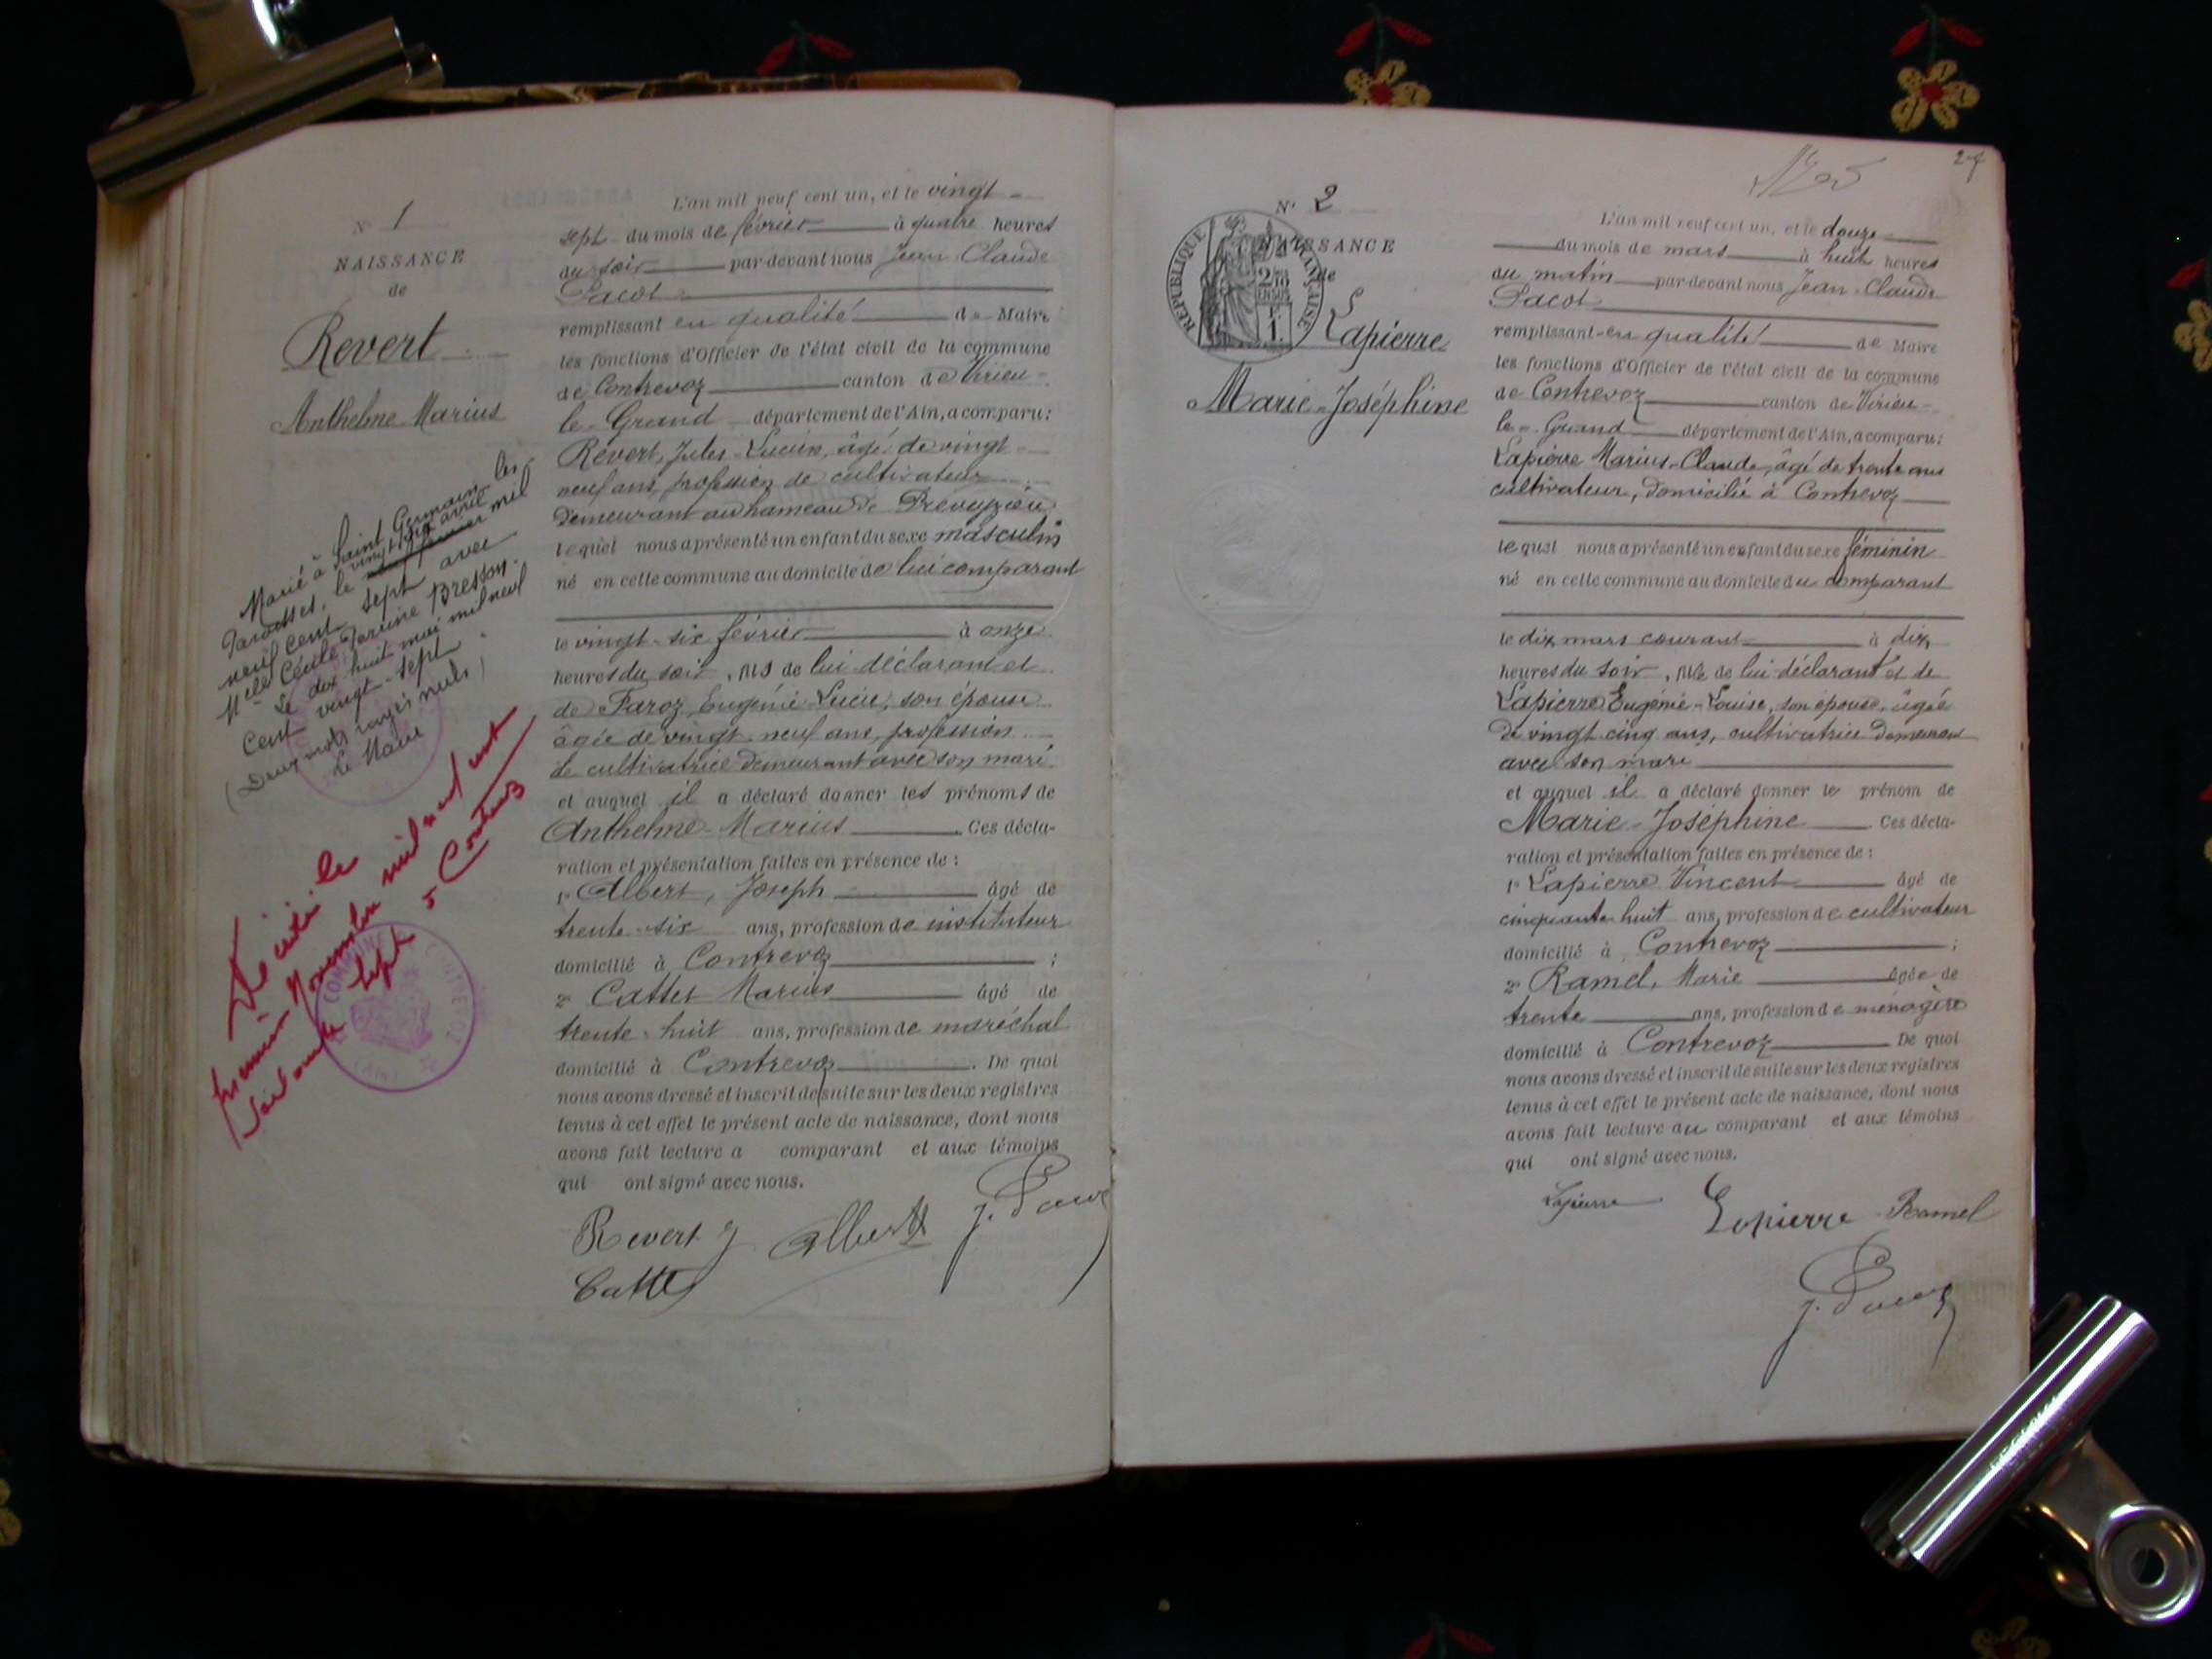 N° 1
NAISSANCE
de
Revert
Anthelme Marius
Marié à Saint Germain-les-
Paroisses, le vingt trois avril
neuf cent sept avec
Melle Cécile Bresson.
Le dix huit mai mil neuf
cent vingt-sept.
(Deux mots rayés nuls)
Le Maire
Décédé le
premier Novembre mil neuf cent
soixante sept à Contrevoz
L'an mil neuf cent un, et le vingt
sept du mois de février à quatre heures
du soir par-devant nous Jean-Claude
Pacot
remplissant en qualité de Maire
les fonctions d'Officier de l'état civil de la commune
de Contrevoz canton de Virieu-
le-Grand département de l'Ain, a comparu:
Revert, Jules-Lucien, âgé de vingt-
neuf ans, profession de cultivateur
demeurant au hameau de Preveyzieu
lequel nous a présenté un enfant du sexe masculin
né en cette commune au domicile de lui comparant
le vingt-six février à onze
heures du soir, fils de lui déclarant et
de Faroz Eugénie-Lucie, son épouse
âgée de vingt-neuf ans, profession
de cultivatrice demeurant avec son mari
et auquel il a déclaré donner les prénoms de
Anthelme-Marius. Ces décla-
ration et présentation faites en présence de :
1° Albert, Joseph âgé de
trente-six ans, profession de instituteur
domicilié à Contrevoz ;
2° Cattet Marius âgé de
trente-huit ans, profession de maréchal
domicilié à Contrevoz. De quoi
nous avons dressé et inscrit de suite sur les deux registres
tenus à cet effet le présent acte de naissance, dont nous
avons fait lecture a comparant et aux témoins
qui ont signé avec nous.
Revert J Albert J. Pacot
Cattet
27
N° 2
NAISSANCE
de
RÉPUBLIQUE FRANÇAISE
Lapierre
Marie-Joséphine
L'an mil neuf cent un, et le douze
du mois de mars à huit heures
du matin par-devant nous Jean-Claude
Pacot
remplissant en qualité de Maire
les fonctions d'Officier de l'état civil de la commune
de Contrevoz canton de Virieu-
le-Grand département de l'Ain, a comparu:
Lapierre Marius-Claude, âgé de trente ans
cultivateur, domicilié à Contrevoz
lequel nous a présenté un enfant du sexe féminin
né en cette commune au domicile du comparant
le dix mars courant à dix
heures du soir, fille de lui déclarant et de
Lapierre Eugénie-Louise, son épouse, âgée
de vingt-cinq ans, cultivatrice demeurant
avec son mari
et auquel il a déclaré donner le prénom de
Marie-Joséphine. Ces décla-
ration et présentation faites en présence de :
1° Lapierre Vincent âgé de
cinquante-huit ans, profession de cultivateur
domicilié à Contrevoz ;
2° Ramel, Marie âgée de
trente ans, profession de ménagère
domicilié à Contrevoz De quoi
nous avons dressé et inscrit de suite sur les deux registres
tenus à cet effet le présent acte de naissance, dont nous
avons fait lecture au comparant et aux témoins
qui ont signé avec nous.
Lapierre Lapierre Ramel
J. Pacot